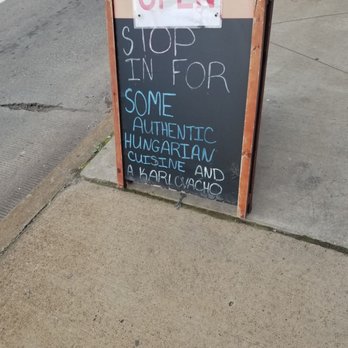 OPEN
STOP
IN FOR
SOME
AUTHENTIC
HUNGARIAN
CUISINE AND
A KARLOVACHO